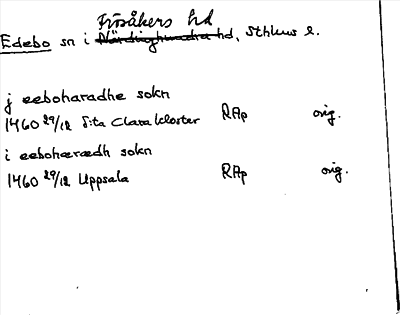 Frösåkers hd
Edebo sn i Närdinghundra hd, Sthlms l.
j eeboharadhe sokn
1460 29/12 S:ta Clara kloster RAp orig.
i eeboheræedh sokn
1460 29/12 Uppsala RAp orig.